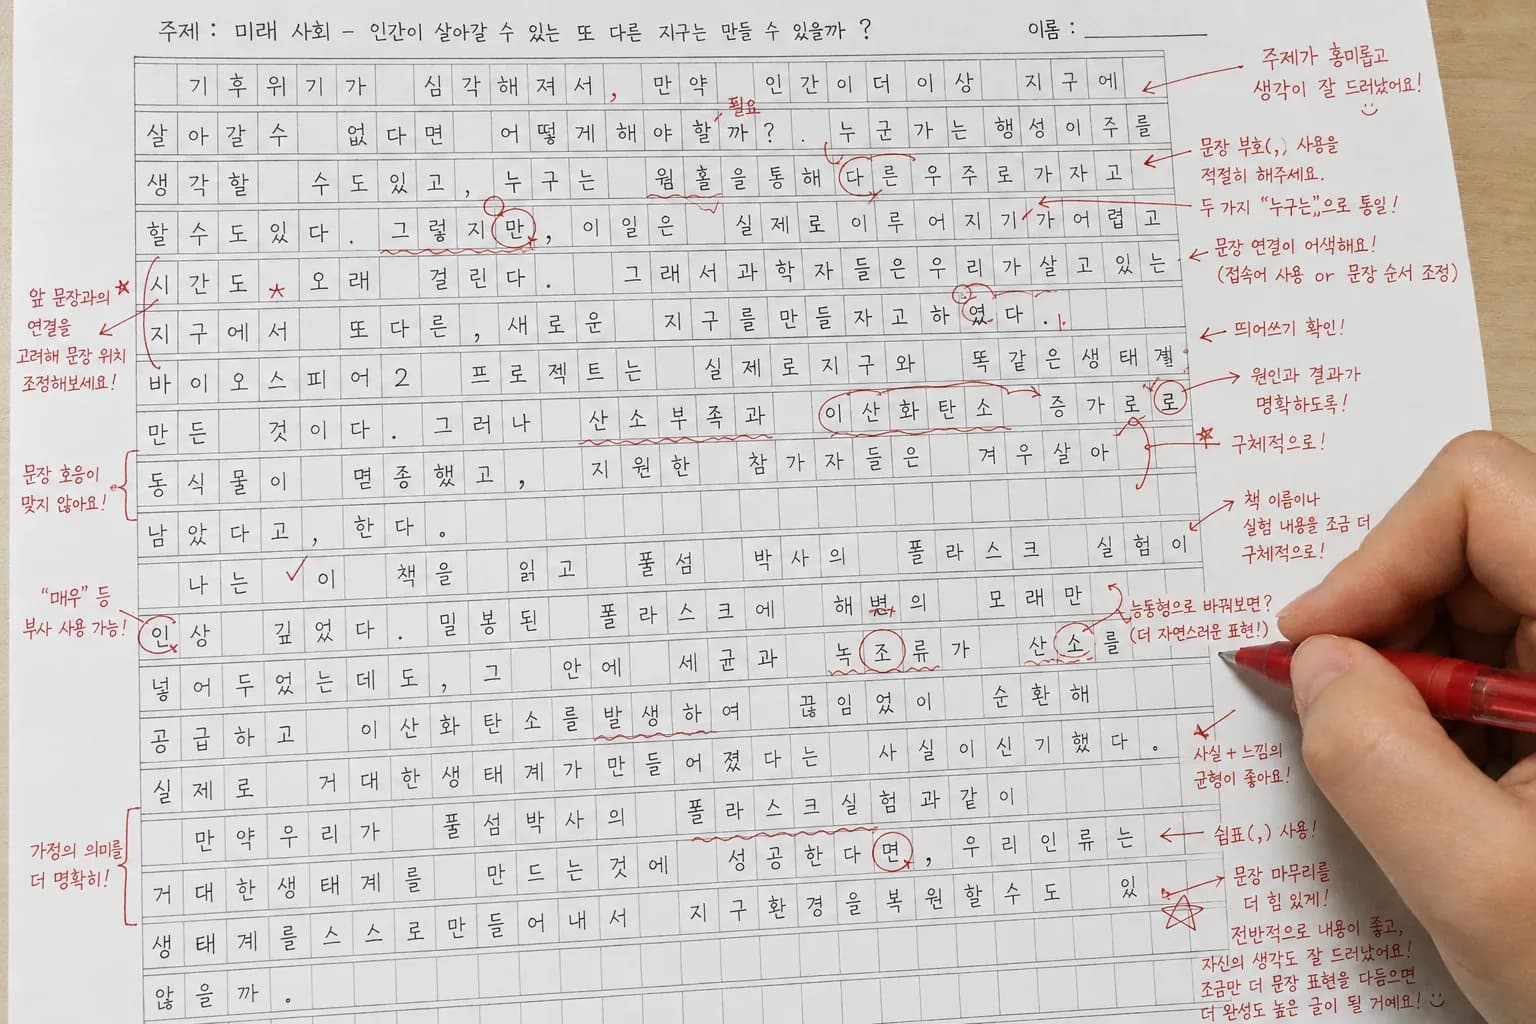 주제 : 미래 사회 - 인간이 살아갈 수 있는 또 다른 지구는 만들 수 있을까 ?
이름 :
기후위기가 심각해져서, 만약 인간이더이상 지구에
살아갈수 없다면 어떻게해야할까? . 누군가는 행성이주를
필요
생각할 수도있고, 누구는 웜홀을통해 다른우주로가자고
할수도있다. 그렇지만, 이일은 실제로이루어지기가어렵고
시간도 오래 걸린다. 그래서과학자들은우리가살고있는
지구에서 또다른, 새로운 지구를만들자고하였다.
바이오스피어2 프로젝트는 실제로지구와 똑같은생태계
만든 것이다. 그러나 산소부족과 이산화탄소 증가로로
동식물이 멸종했고, 지원한 참가자들은 겨우살아
남았다고, 한다.
나는 이 책을 읽고 풀섬 박사의 폴라스크 실험이
인상 깊었다. 밀봉된 폴라스크에 해변의 모래만
넣어두었는데도, 그 안에 세균과 녹조류가 산소를
공급하고 이산화탄소를발생하여 끊임었이 순환해
실제로 거대한생태계가만들어졌다는 사실이신기했다.
만약우리가 풀섬박사의 폴라스크실험과같이
거대한생태계를 만드는것에 성공한다면, 우리인류는
생태계를스스로만들어내서 지구환경을복원할수도 있
않을까.
주제가 흥미롭고
생각이 잘 드러났어요!
문장 부호(,) 사용을
적절히 해주세요.
두 가지 "누구는"으로 통일!
문장 연결이 어색해요!
(접속어 사용 or 문장 순서 조정)
띄어쓰기 확인!
원인과 결과가
명확하도록!
구체적으로!
책 이름이나
실험 내용을 조금 더
구체적으로!
능동형으로 바꿔보면?
(더 자연스러운 표현!)
사실 + 느낌의
균형이 좋아요!
쉼표(,) 사용!
문장 마무리를
더 힘 있게!
전반적으로 내용이 좋고,
자신의 생각도 잘 드러났어요!
조금만 더 문장 표현을 다듬으면
더 완성도 높은 글이 될 거예요!
앞 문장과의
연결을
고려해 문장 위치
조정해보세요!
문장 호응이
맞지 않아요!
"매우" 등
부사 사용 가능!
가정의 의미를
더 명확히!